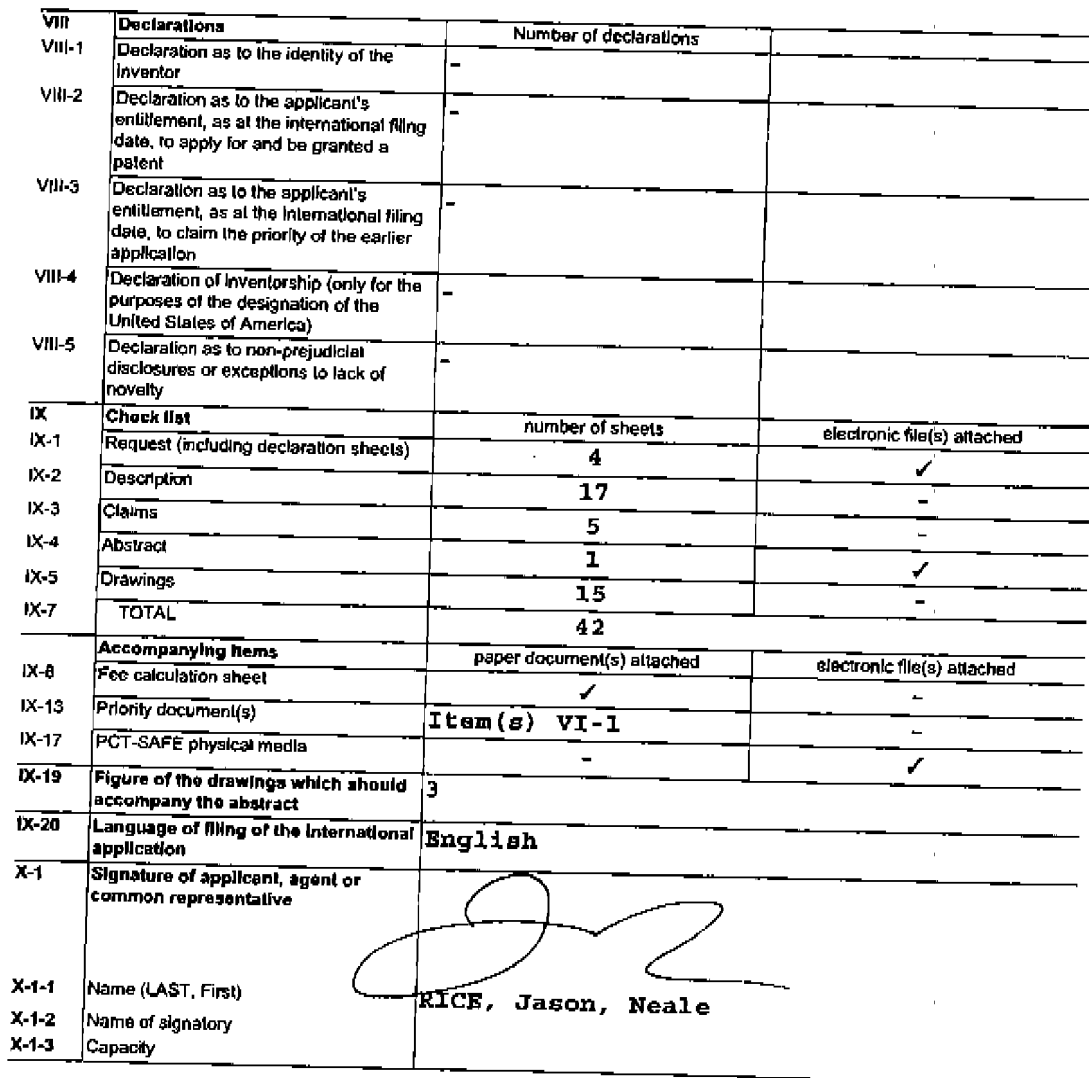 VIII Declarations Number of declarations
VIII-1 Declaration as to the identity of the inventor -
VIII-2 Declaration as to the applicant's entitlement, as at the international filing date, to apply for and be granted a patent -
VIII-3 Declaration as to the applicant's entitlement, as at the international filing date, to claim the priority of the earlier application -
VIII-4 Declaration of inventorship (only for the purposes of the designation of the United States of America) -
VIII-5 Declaration as to non-prejudicial disclosures or exceptions to lack of novelty -
IX Check list number of sheets electronic file(s) attached
IX-1 Request (including declaration sheets) 4 ✓
IX-2 Description 17 -
IX-3 Claims 5 -
IX-4 Abstract 1 ✓
IX-5 Drawings 15 -
IX-7 TOTAL 42
Accompanying items paper document(s) attached electronic file(s) attached
IX-8 Fee calculation sheet ✓ -
IX-13 Priority document(s) Item(s) VI-1 -
IX-17 PCT-SAFE physical media - ✓
IX-19 Figure of the drawings which should accompany the abstract 3
IX-20 Language of filing of the international application English
X-1 Signature of applicant, agent or common representative
X-1-1 Name (LAST, First) RICE, Jason, Neale
X-1-2 Name of signatory
X-1-3 Capacity